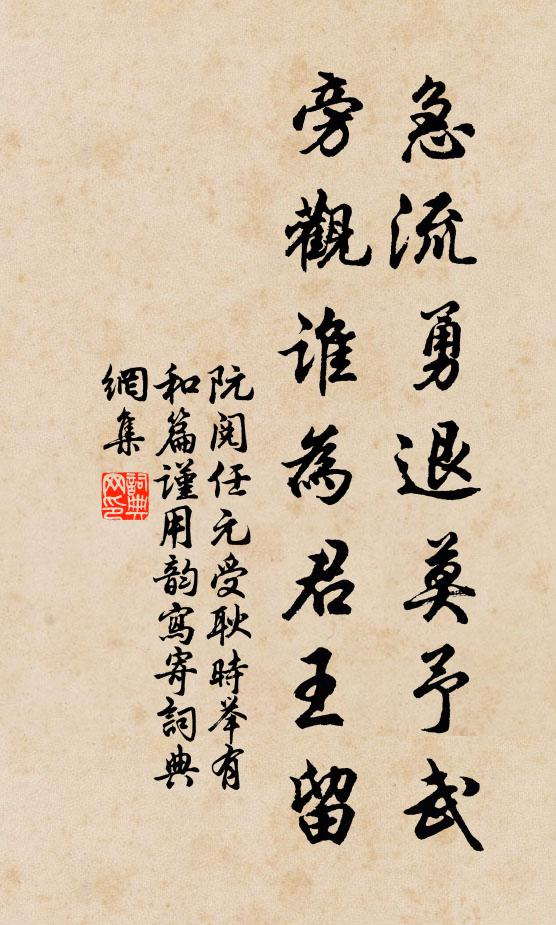 急流勇退莫予武
旁觀谁為君王留
阮閱任元受耿時举有
和篇谨用韵寫寄詞典
網集
詞典
网印